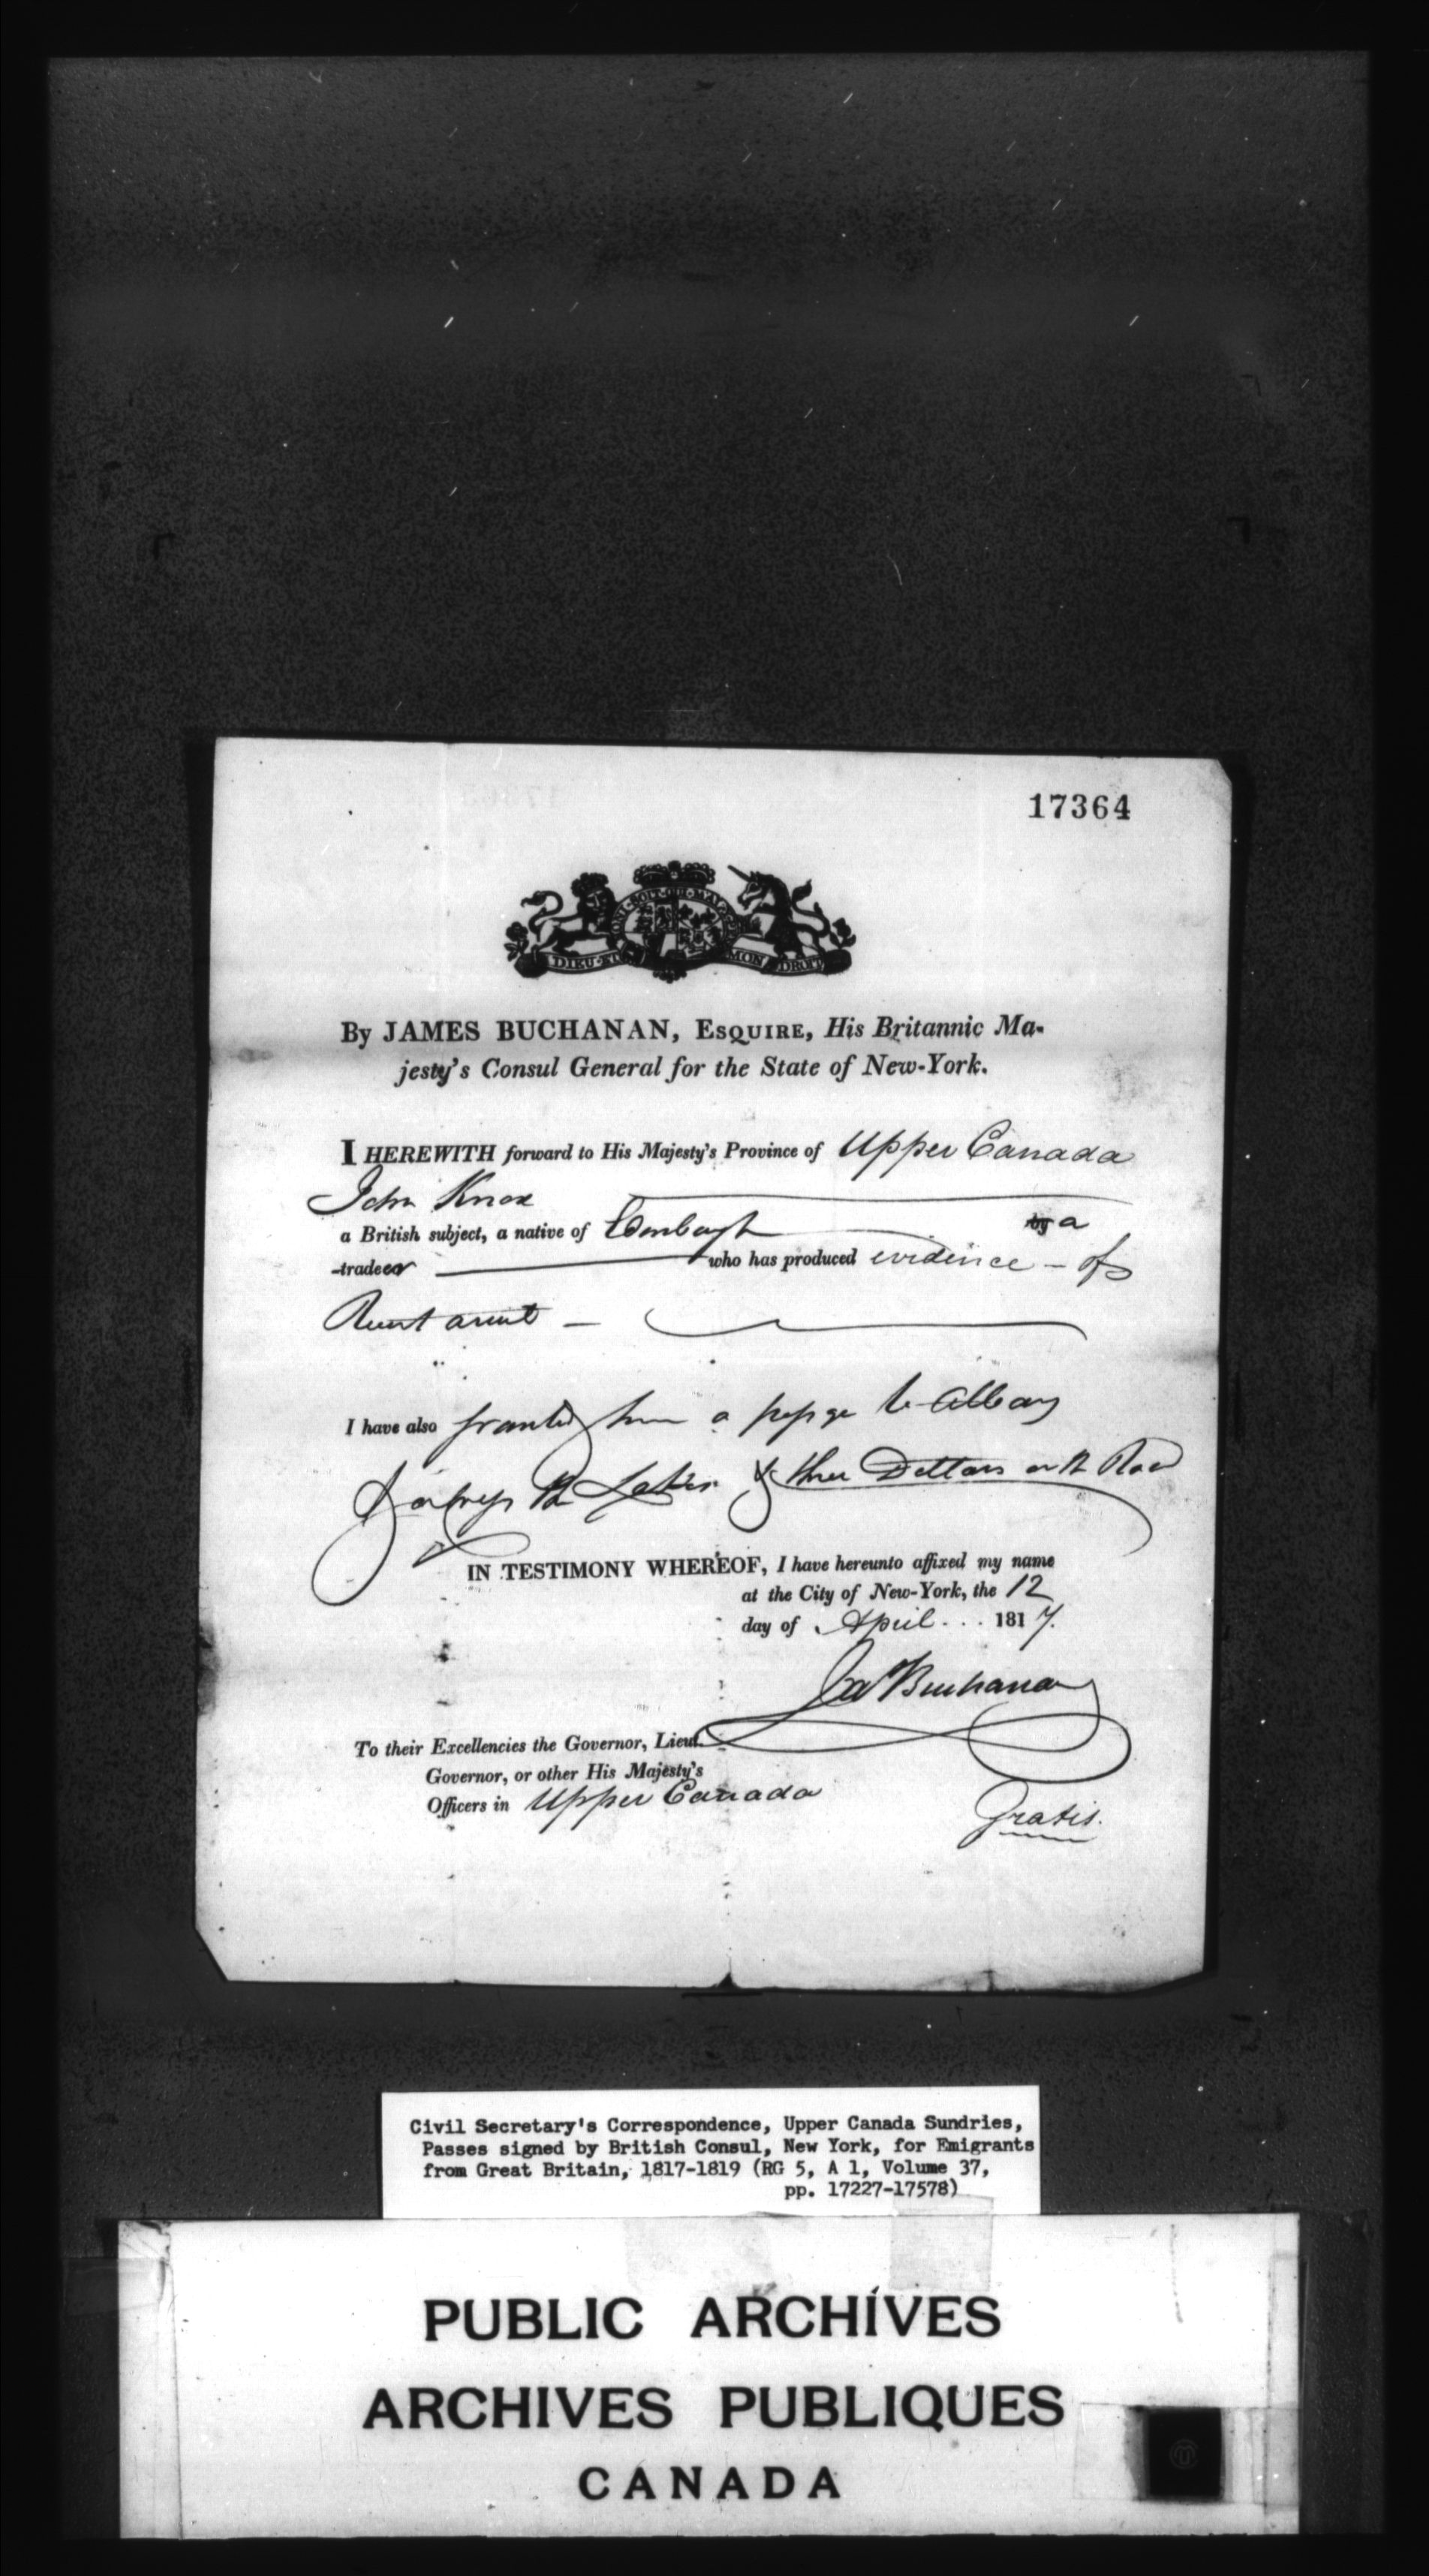 17364
HONI·SOIT·QUI·MAL·
DIEU·ET MON DROIT
By JAMES BUCHANAN, ESQUIRE, His Britannic Ma-
jesty's Consul General for the State of New-York.
I HEREWITH forward to His Majesty's Province of Upper Canada
John Knox
a British subject, a native of Edinburgh by a
trade who has produced evidence - of
I have also granted him a to Albany
& three Dollars
IN TESTIMONY WHEREOF, I have hereunto affixed my name
at the City of New-York, the 12
day of April ... 1817.
Jas Buchanan
To their Excellencies the Governor, Lieut.
Governor, or other His Majesty's
Officers in Upper Canada
Gratis.
Civil Secretary's Correspondence, Upper Canada Sundries,
Passes signed by British Consul, New York, for Emigrants
from Great Britain, 1817-1819 (RG 5, A 1, Volume 37,
pp. 17227-17578)
PUBLIC ARCHIVES
ARCHIVES PUBLIQUES
CANADA